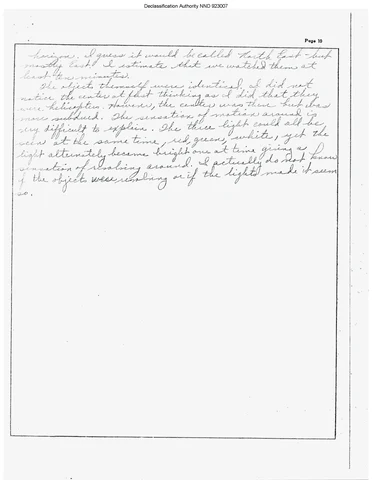 Declassification Authority NND 923007
Page 10
horizon. I guess it would be called North East - but
mostly East. I estimate that we watched them at
least ten minutes.
The objects themself were identical, I did not
notice the center at first thinking as I did that they
were helicopters. However, the center was there but was
more subdued. The sensation of motion around is
very difficult to explain. The three light could all be
seen at the same time, red, green, white, yet the
light alternately became bright one at time giving a
sensation of revolving around. I actually do not know
if the objects were revolving or if the lights made it seem
so.